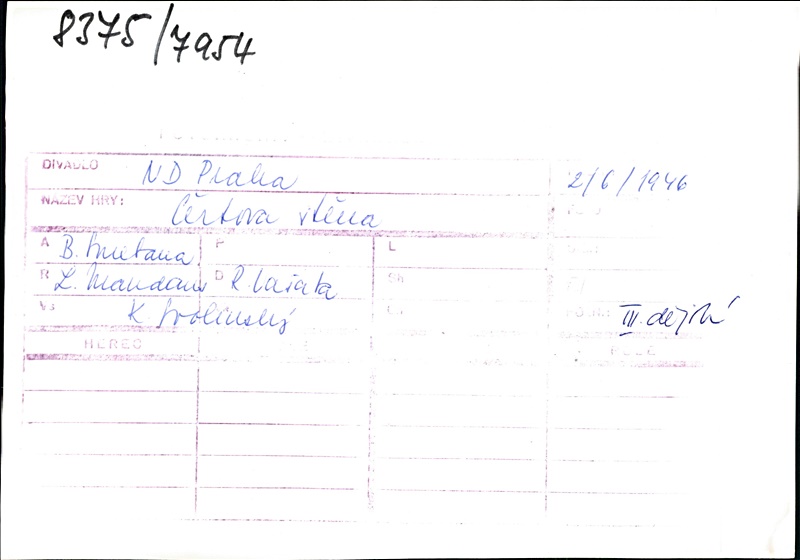 8375/7954
DIVADLO ND Praha 2/6/1946
NÁZEV HRY: Čertova stěna
A B. Smetana P L
R L. Mandaus D R. Vašata Ch
K. Svolinský III. dějství
HEREC ROLE